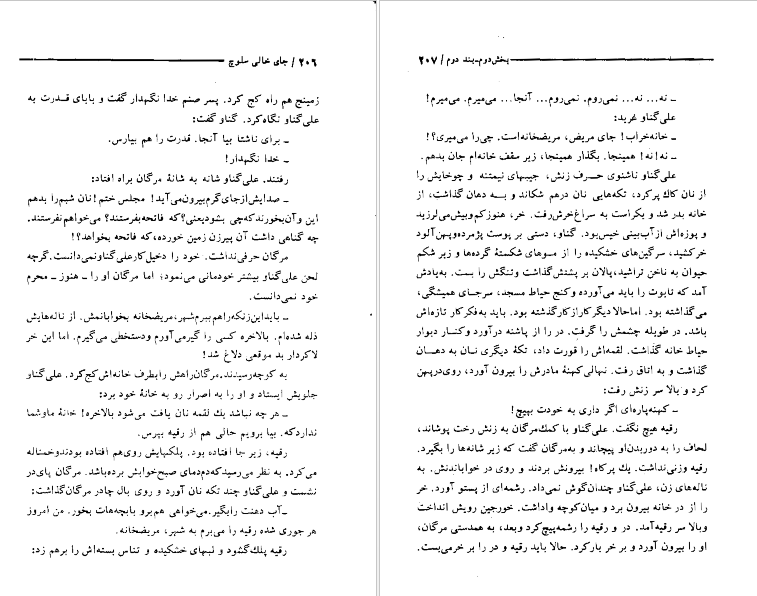 ۲۰۶ / جای خالی سلوچ
زمینج هم راه کج کرد. پسر صنم خدا نگهدار گفت و بابای قدرت به
علی‌گناو نگاه کرد. گناو گفت:
ـ برای ناشتا بیا آنجا. قدرت را هم بیارس.
ـ خدا نگهدار!
رفتند. علی‌گناو شانه به شانهٔ مرگان براه افتاد:
ـ صدایش از جای گرم بیرون می‌آید! مجلس ختم! نان شبم را بدهم
این و آن بخورند که چی بشود یعنی؟ که فاتحه بفرستند؟ می‌خواهم نفرستند.
چه گناهی داشت آن پیرزن زمین خورده، که فاتحه بخواهد؟!
مرگان حرفی نداشت. خود را دخیل کار علی‌گناو نمی‌دانست. گرچه
لحن علی‌گناو بیشتر خودمانی می‌نمود؛ اما مرگان او را ـ هنوز ـ محرم
خود نمی‌دانست.
ـ باید این زنکه را هم ببرم شهر، مریضخانه بخوابانمش. از ناله‌هایش
ذله شده‌ام. بالاخره کسی را گیر می‌آورم و دستخطی می‌گیرم. اما این خر
لاکردار بد موقعی دلاغ شد!
به کوچه رسیدند. مرگان راهش را بطرف خانه‌اش کج کرد. علی‌گناو
جلویش ایستاد و او را به اصرار رو به خانهٔ خود برد:
ـ هر چه نباشد یك لقمه نان یافت می‌شود بالاخره! خانهٔ ما و شما
ندارد که. بیا برویم حالی هم از رقیه بپرس.
رقیه، زیر جا افتاده بود. پلکهایش روی هم افتاده بودند و خمناله
می‌کرد. به نظر می‌رسید که دم‌دمای صبح خوابش برده باشد. مرگان پای در
نشست و علی‌گناو چند تکه نان آورد و روی بال چادر مرگان گذاشت:
ـ آب دهنت را بگیر. می‌خواهی هم برو با بچه‌هات بخور. من امروز
هر جوری شده رقیه را می‌برم به شهر، مریضخانه.
رقیه پلك گشود و لبهای خشکیده و تناس بسته‌اش را برهم زد:
بخش دوم ـ بند دوم / ۲۰۷
ـ نه... نه... نمی‌روم. نمی‌روم... آنجا... می‌میرم. می‌میرم!
علی‌گناو غرید:
ـ خانه‌خراب! جای مریض، مریضخانه است. چی را می‌میری؟!
ـ نه! نه! همینجا. بگذار همینجا، زیر سقف خانه‌ام جان بدهم.
علی‌گناو ناشنوی حرف زنش، جیبهای نیمتنه و چوخایش را
از نان کاك پر کرد، تکه‌هایی نان در هم شکاند و به دهان گذاشت، از
خانه بدر شد و یکراست به سراغ خرش رفت. خر، هنوز کم و بیش می‌لرزید
و پوزه‌اش از آب بینی خیس بود. گناو، دستی بر پوست پژمرده و پهن آلود
خر کشید، سرگین‌های خشکیده را از موهای شکستهٔ گرده‌ها و زیر شکم
حیوان به ناخن تراشید، پالان بر پشتش گذاشت و تنگش را بست. به یادش
آمد که تابوت را باید می‌آورده و کنج حیاط مسجد، سرجای همیشگی،
می‌گذاشته بود. اما حالا دیگر کار از کار گذشته بود. باید به فکر کار تازه‌اش
باشد. در طویله چشمش را گرفت. در را از پاشنه درآورد و کنار دیوار
حیاط خانه گذاشت. لقمه‌اش را قورت داد، تکهٔ دیگری نان به دهان
گذاشت و به اتاق رفت. نهالی کهنهٔ مادرش را بیرون آورد، روی در پهن
کرد و بالا سر زنش رفت:
ـ کهنه‌پاره‌ای اگر داری به خودت بپیچ!
رقیه هیچ نگفت. علی‌گناو با کمك مرگان به زنش رخت پوشاند،
لحاف را به دور بدن او پیچاند و به مرگان گفت که زیر شانه‌ها را بگیرد.
رقیه وزنی نداشت. یك پر کاه! بیرونش بردند و روی در خواباندنش. به
ناله‌های زن، علی‌گناو چندان گوش نمی‌داد. رشمه‌ای از پستو آورد. خر
را از در خانه بیرون برد و میان کوچه واداشت. خورجین رویش انداخت
و بالا سر رقیه آمد. در و رقیه را رشمه‌پیچ کرد و بعد، به همدستی مرگان،
او را بیرون آورد و بر خر بار کرد. حالا باید رقیه و در را بر خر می‌بست.